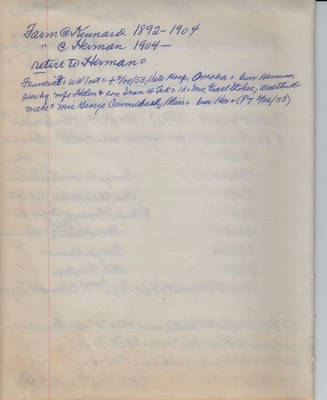 Farm @ Kennard 1892-1904
" @ Herman 1904—
retire to Herman =
Francis = WW1 vet = + 4/20/53, Vets Hosp. Omaha = bur Herman
Surv by wife Helen & son Ivan @ Tek = 1 d = Mrs Earl Stokes,
niece = Mrs George Carmichael, Blair = bur (P7 4/26/53)